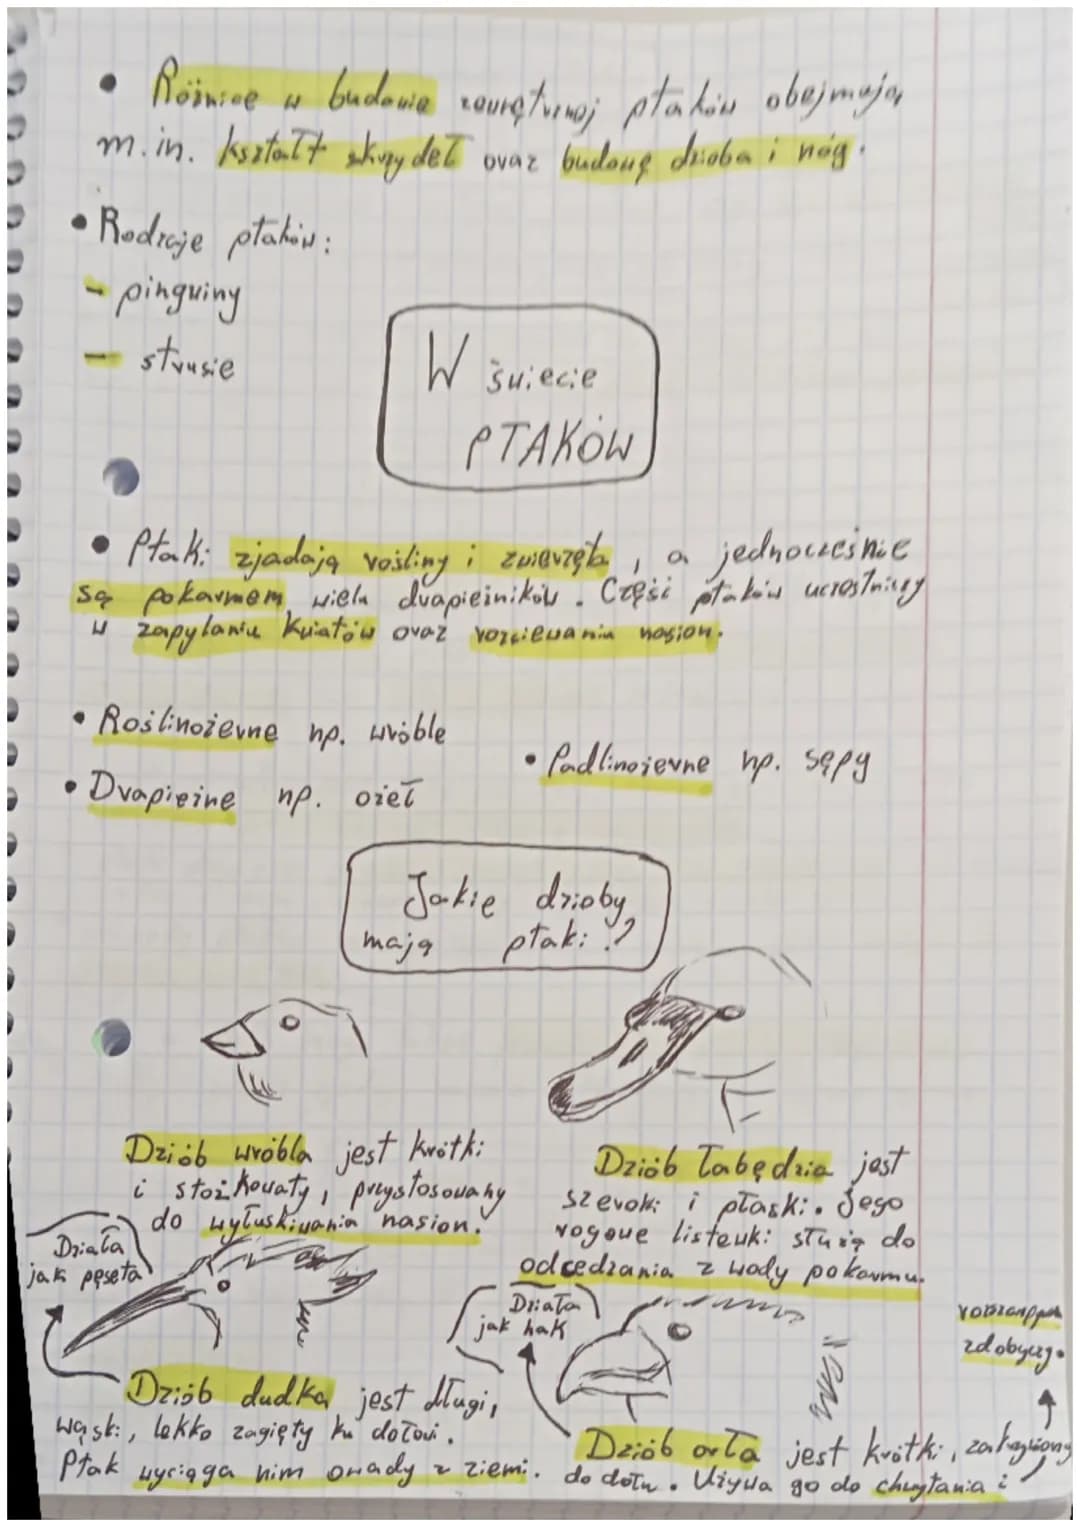 • Różnice w budowie zewnętrznej ptaków obejmują
m.in. kształt skrzydeł oraz budowę dzioba i nóg.
• Rodzaje ptaków:
- pinguiny
- strusie
W świecie
PTAKÓW
• Ptaki zjadają rośliny i zwierzęta, a jednocześnie
są pokarmem wielu drapieżników. Część ptaków uczestniczy
w zapylaniu kwiatów oraz rozsiewaniu nasion.
• Roślinożerne np. wróble
• Padlinożerne np. sępy
• Drapieżne np. ożeł
Jakie dzioby
mają ptaki?
Dziób wróbla jest krótki
i stożkowaty, przystosowany
do wyłuskiwania nasion.
Dziób łabędzia jest
szeroki i płaski. Jego
rogowe listewki służą do
odcedzania z wody pokarmu.
Działa
jak pęseta
Działa
jak hak
Dziób dudka jest długi,
wąski, lekko zagięty ku dołowi.
Ptak wyciąga nim owady z ziemi.
Dziób orła jest krótki, zakrzywiony
do dołu. Używa go do chwytania i
zdobyczy.